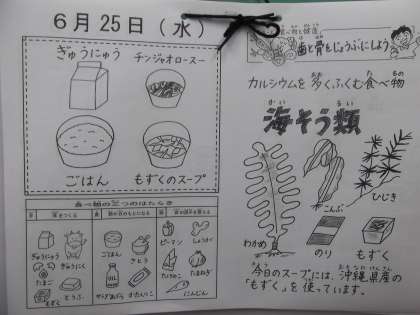 6月25日(水)
ぎゅうにゅう
チンジャオロースー
ごはん
もずくのスープ
食べ物の三つのはたらき
ぎゅうにゅう
ぎゅうにく
たまご
とうふ
もずく
ごはん
さとう
サラダあぶら
かたくりこ
ピーマン
しょうが
たけのこ
たまねぎ
にんじん
歯と骨をじょうぶにしよう
カルシウムを多くふくむ食べ物
海そう類
わかめ
こんぶ
ひじき
のり
もずく
今日のスープには、沖縄県産の
「もずく」を使っています。